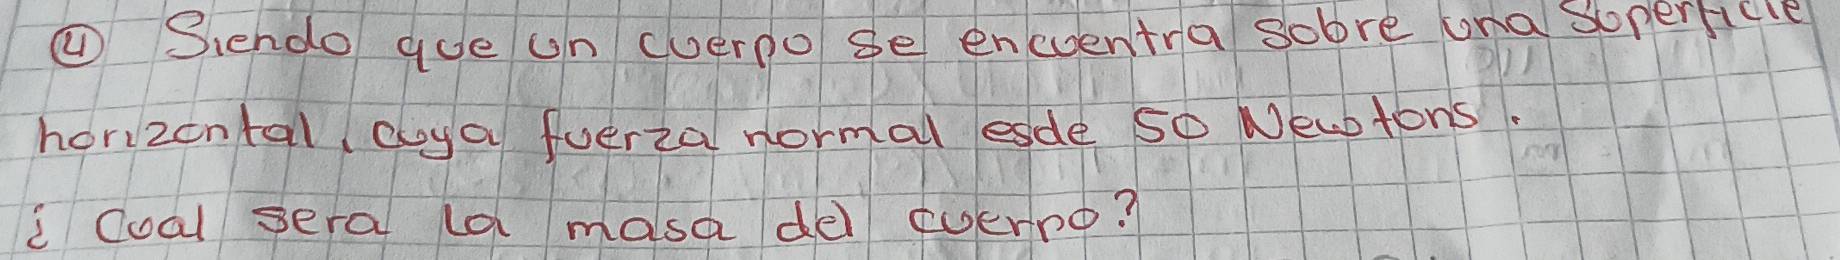 ④ Siendo que un cuerpo se encuentra sobre una superficie
horizontal, cuya fuerza normal es de 50 Newtons.
¿ Cual sera la masa del cuerpo?